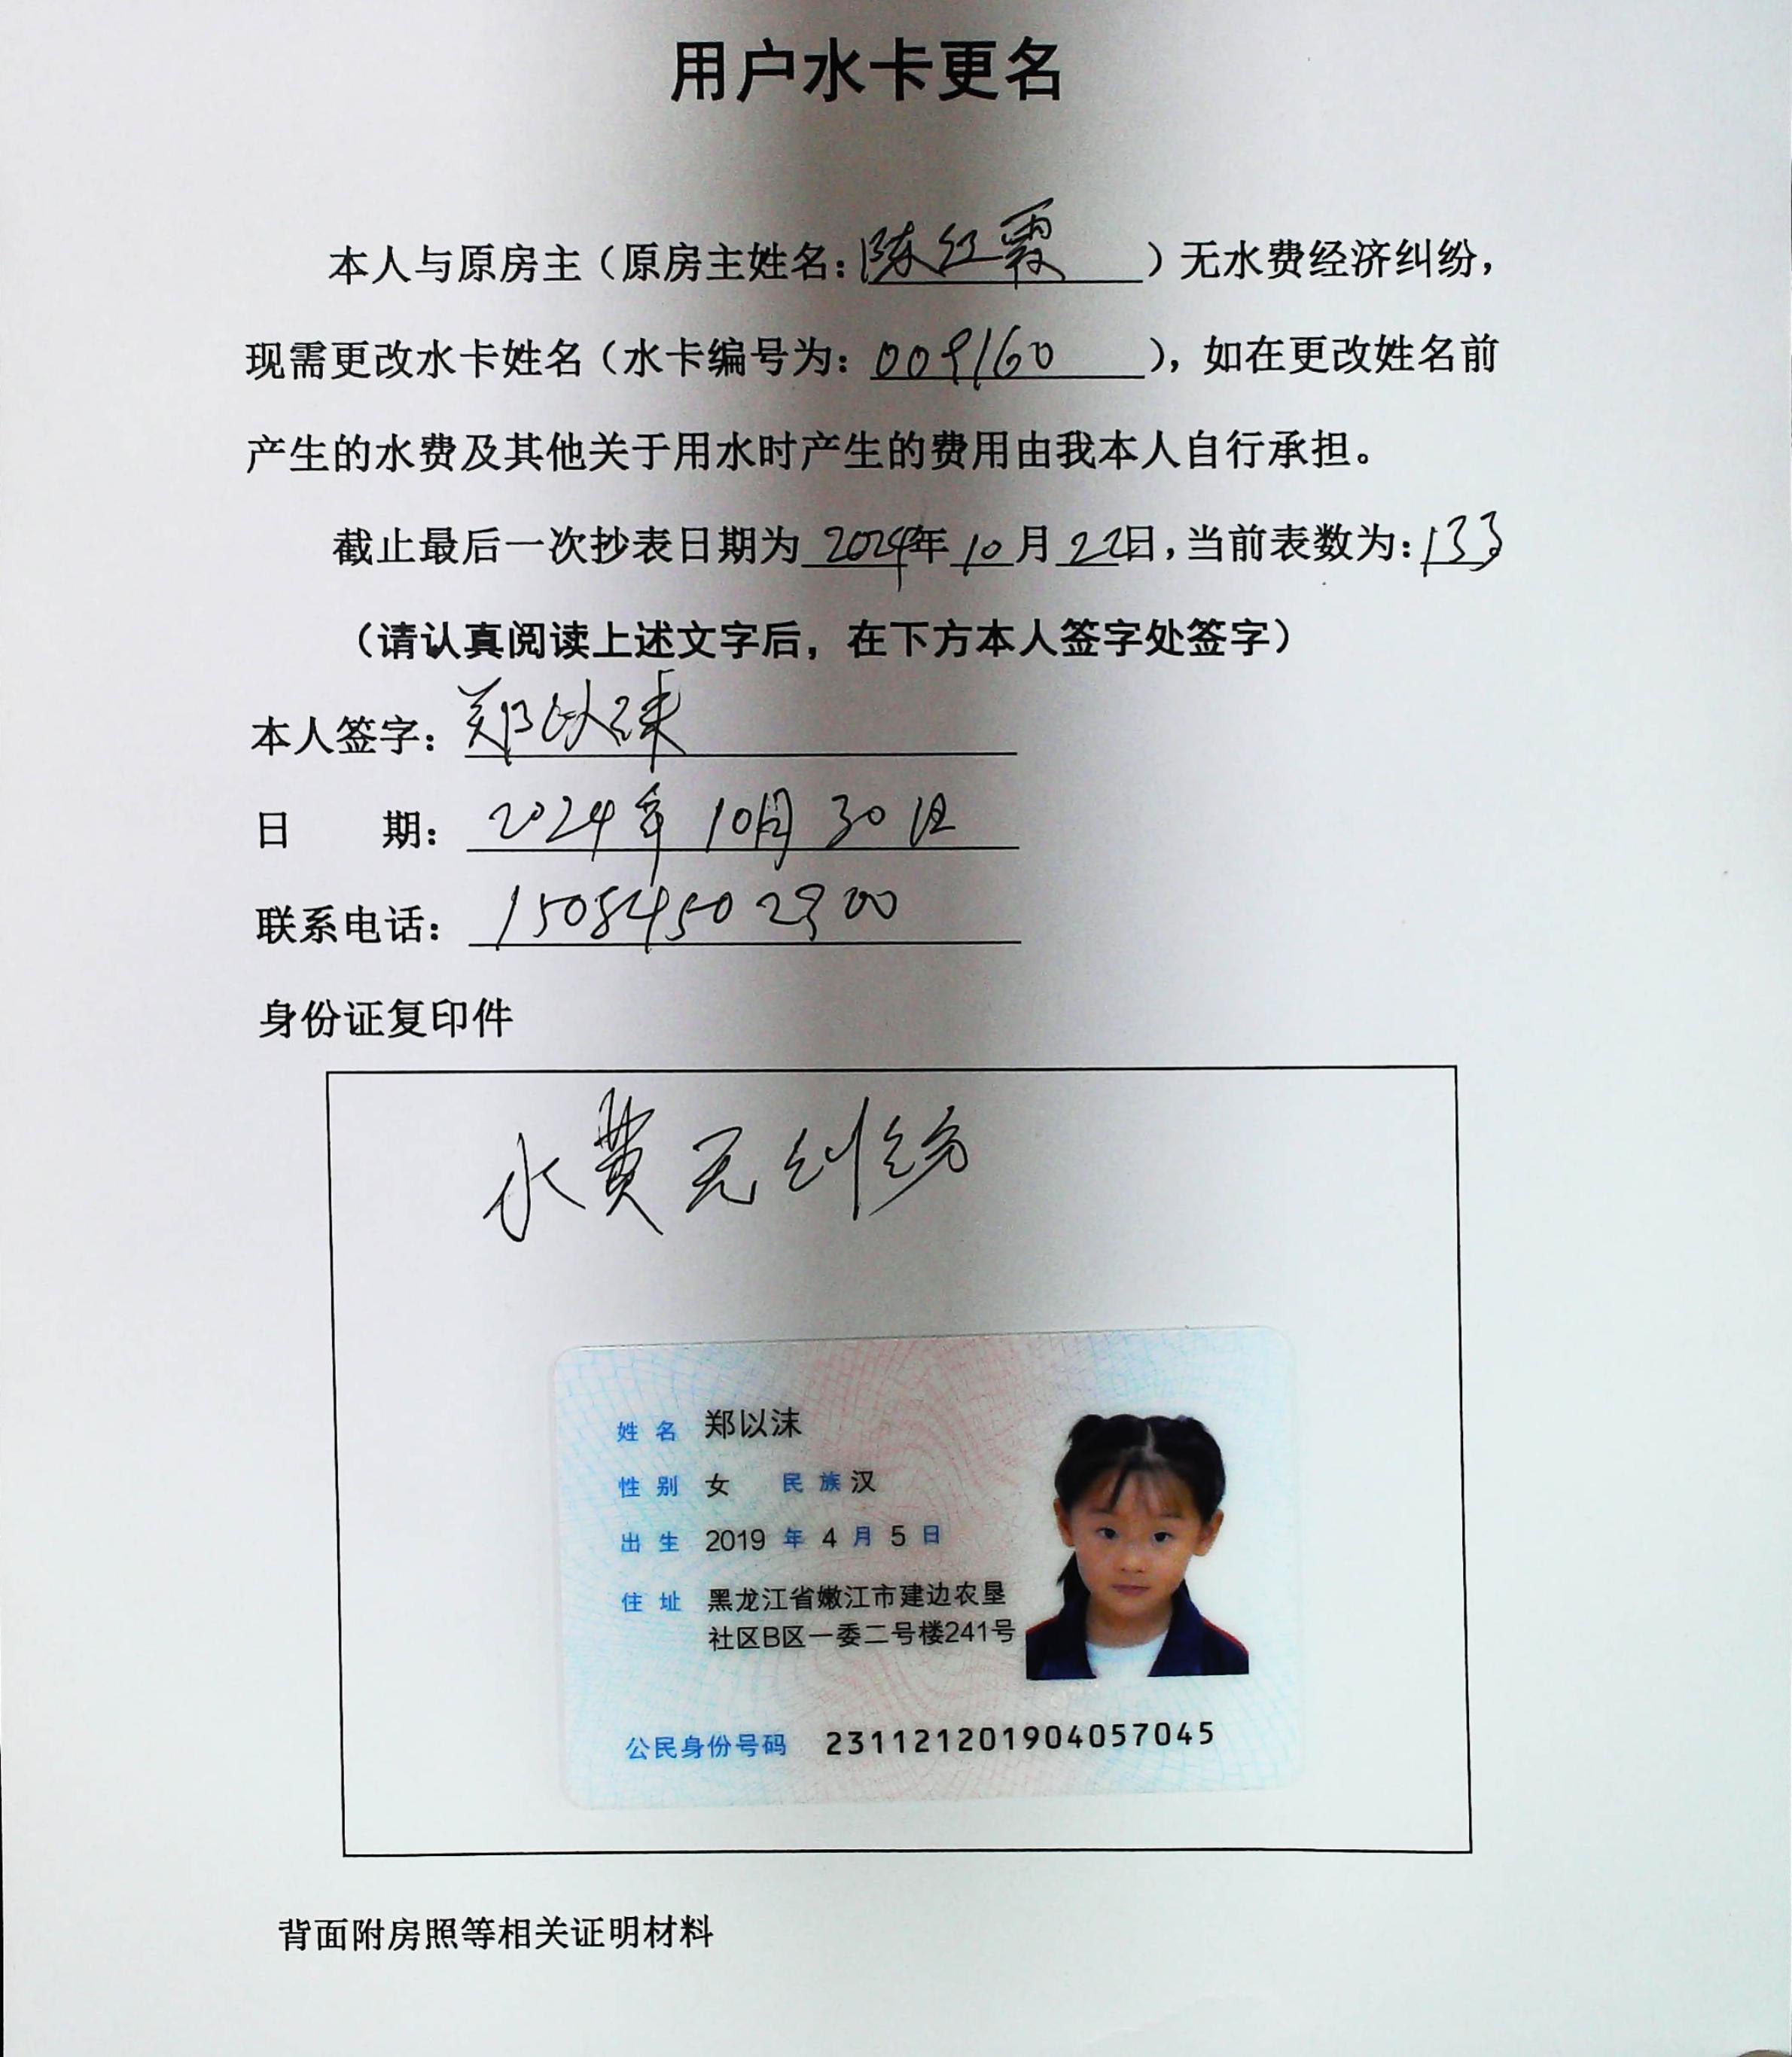 用户水卡更名
本人与原房主（原房主姓名：陈红霞）无水费经济纠纷，
现需更改水卡姓名（水卡编号为：009160），如在更改姓名前
产生的水费及其他关于用水时产生的费用由我本人自行承担。
截止最后一次抄表日期为2024年10月22日，当前表数为：133
（请认真阅读上述文字后，在下方本人签字处签字）
本人签字：郑以沫
日 期：2024年10月30日
联系电话：15084502900
身份证复印件
水费无纠纷
姓名 郑以沫
性别 女 民族 汉
出生 2019 年 4 月 5 日
住址 黑龙江省嫩江市建边农垦
社区B区一委二号楼241号
公民身份号码 231121201904057045
背面附房照等相关证明材料